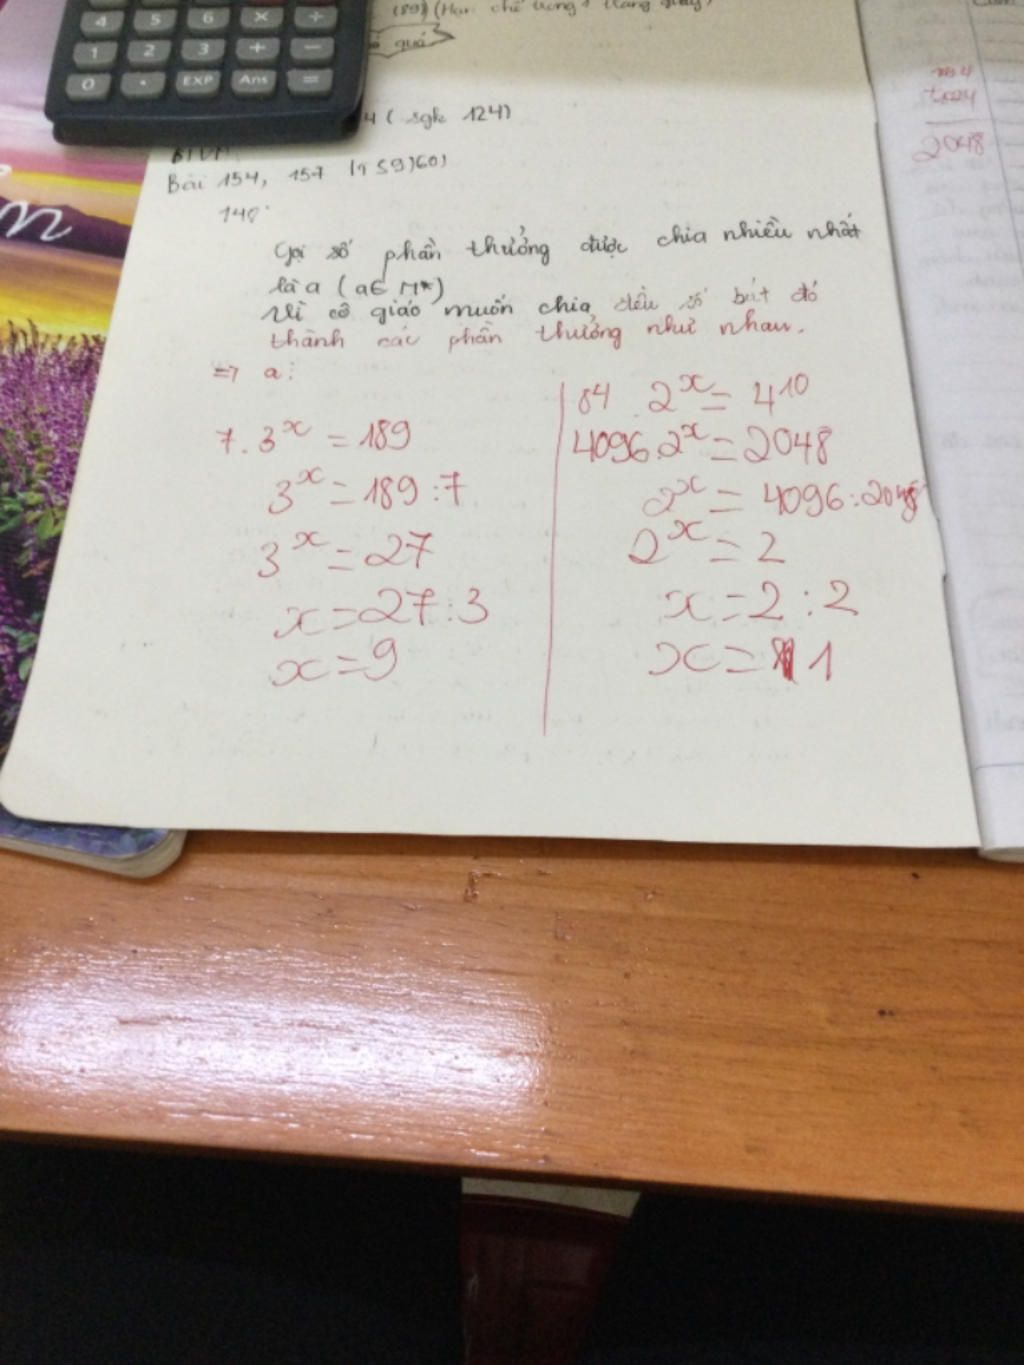 4 5 6 × ÷
1 2 3 + −
0 . EXP Ans =
(89) (Hạn chế
quá
4 ( sgk 124)
BTVN
Bài 154, 157 (T 59)60)
140
Gọi số phần thưởng được chia nhiều nhất
là a (a∈ N*)
Vì cô giáo muốn chia đều số bút đó
thành các phần thưởng như nhau.
=> a:
7. 3^x = 189
3^x = 189 : 7
3^x = 27
x = 27 : 3
x = 9
84 . 2^x = 4^10
4096.2^x = 2048
2^x = 4096 : 2048
2^x = 2
x = 2 : 2
x = 1
2048